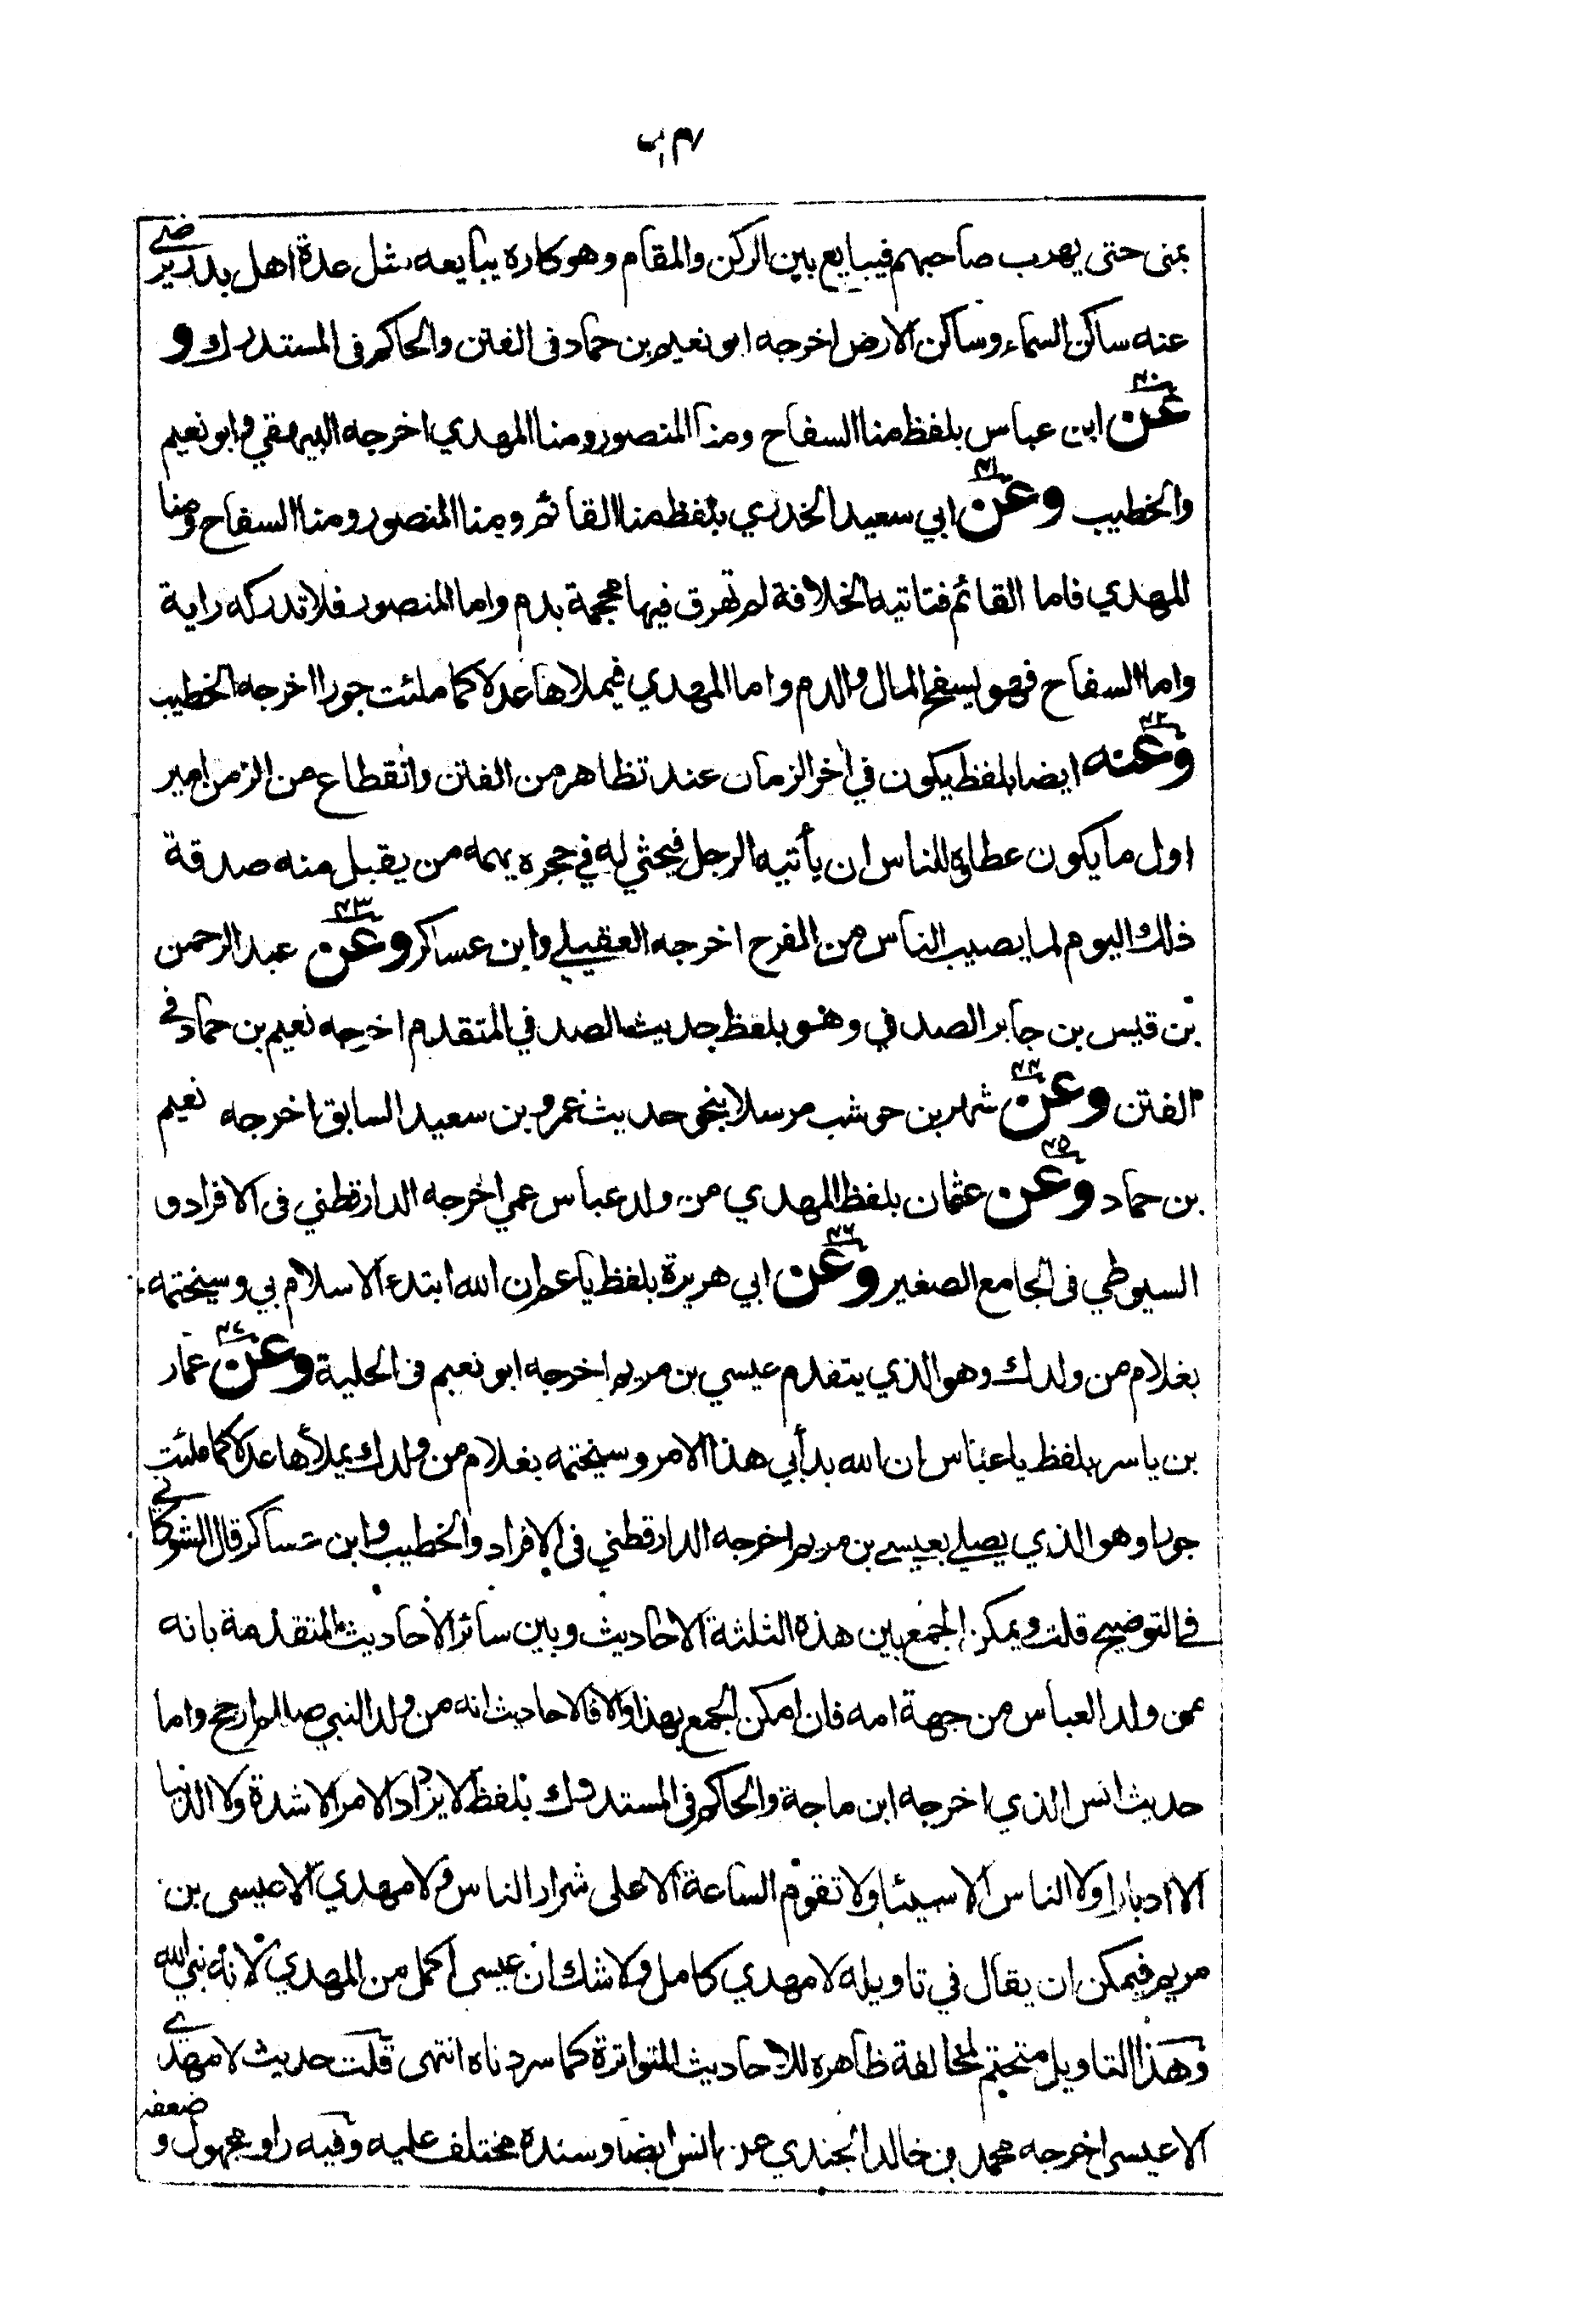 بمنى حتى يهرب صاحبهم فيبايع بين الركن والمقام وهو كاره يبايعه مثل عدة اهل بدر يرضى
عنه ساكن السماء وساكن الارض اخرجه ابو نعيم بن حماد فى الفتن والحاكم فى المستدرك و
٢٠
عن ابن عباس بلفظ منا السفاح ومنا المنصور ومنا المهدي اخرجه البيهقي وابو نعيم
٢١
والخطيب وعن ابي سعيد الخدري بلفظ منا القائم ومنا المنصور ومنا السفاح ومنا
المهدي فاما القائم فتاتيه الخلافة لم تهرق فيها محجمة بدم واما المنصور فلا تدركه راية
واما السفاح فهو يسفح المال والدم واما المهدي فيملاها عدلا كما ملئت جورا اخرجه الخطيب
٢٢
وعنه ايضا بلفظ يكون في اخر الزمان عند تظاهر من الفتن وانقطاع من الزمن امير
اول ما يكون عطاؤه للناس ان يأتيه الرجل فيحثي له في حجره يهمه من يقبل منه صدقة
٢٣
ذلك اليوم لما يصيب الناس من الفرح اخرجه العقيلي وابن عساكر وعن عبد الرحمن
بن قيس بن جابر الصدفي وهو بلفظ حديث الصدفي المتقدم اخرجه نعيم بن حماد في
٢٤
الفتن وعن شهر بن حوشب مرسلا بنحو حديث عمرو بن سعيد السابق اخرجه نعيم
٢٥
بن حماد وعن عثمان بلفظ المهدي من ولد عباس عمي اخرجه الدارقطني فى الافراد و
٢٦
السيوطي فى الجامع الصغير وعن ابي هريرة بلفظ يا عم ان الله ابتدء الاسلام بي وسيختمه
٢٧
بغلام من ولدك وهو الذي يتقدم عيسي بن مريم اخرجه ابو نعيم فى الحلية وعن عمار
بن ياسر بلفظ يا عباس ان الله بدأ بي هذا الامر وسيختمه بغلام من ولدك يملأها عدلا كما ملئت
جورا وهو الذي يصلي بعيسى بن مريم اخرجه الدارقطني فى الافراد والخطيب وابن عساكر قال الشوكاني
في التوضيح قلت ويمكن الجمع بين هذه الثلثة الاحاديث وبين سائر الاحاديث المتقدمة بانه
من ولد العباس من جهة امه فان امكن الجمع بهذا والا فالاحاديث انه من ولد النبي صللم ارجح واما
حديث انس الذي اخرجه ابن ماجة والحاكم فى المستدرك بلفظ لا يزداد الامر الا شدة ولا الدنيا
الا ادبارا ولا الناس الا سيئا ولا تقوم الساعة الا على شرار الناس ولا مهدي الا عيسى بن
مريم فيمكن ان يقال في تاويله لا مهدي كامل ولا شك ان عيسى اكمل من المهدي لانه نبي الله
وهذا التاويل متحتم لمخالفة ظاهره للاحاديث المتواترة كما سردناه انتهى قلت حديث لا مهدي
الا عيسى اخرجه محمد بن خالد الجندي عن انس ايضا وسنده مختلف عليه وفيه راو مجهول و ضعفه